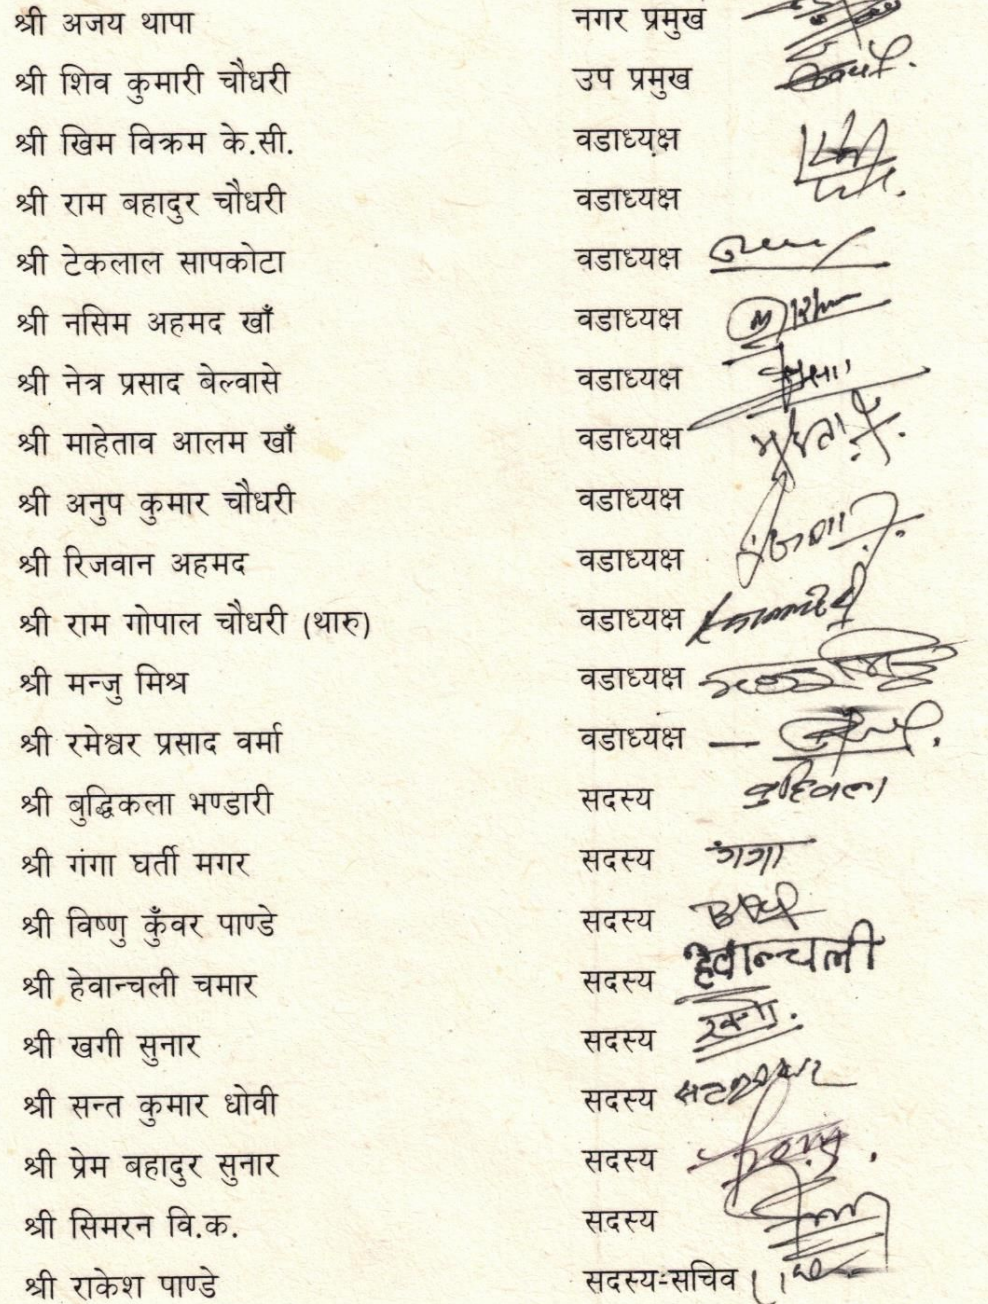 श्री अजय थापा नगर प्रमुख
श्री शिव कुमारी चौधरी उप प्रमुख
श्री खिम विक्रम के.सी. वडाध्यक्ष
श्री राम बहादुर चौधरी वडाध्यक्ष
श्री टेकलाल सापकोटा वडाध्यक्ष
श्री नसिम अहमद खाँ वडाध्यक्ष
श्री नेत्र प्रसाद बेल्वासे वडाध्यक्ष
श्री माहेताव आलम खाँ वडाध्यक्ष
श्री अनुप कुमार चौधरी वडाध्यक्ष
श्री रिजवान अहमद वडाध्यक्ष
श्री राम गोपाल चौधरी (थारु) वडाध्यक्ष
श्री मन्जु मिश्र वडाध्यक्ष
श्री रमेश्वर प्रसाद वर्मा वडाध्यक्ष
श्री बुद्धिकला भण्डारी सदस्य
श्री गंगा घर्ती मगर सदस्य गंगा
श्री विष्णु कुँवर पाण्डे सदस्य
श्री हेवान्चली चमार सदस्य हेवान्चली
श्री खगी सुनार सदस्य
श्री सन्त कुमार धोवी सदस्य
श्री प्रेम बहादुर सुनार सदस्य
श्री सिमरन वि.क. सदस्य
श्री राकेश पाण्डे सदस्य-सचिव